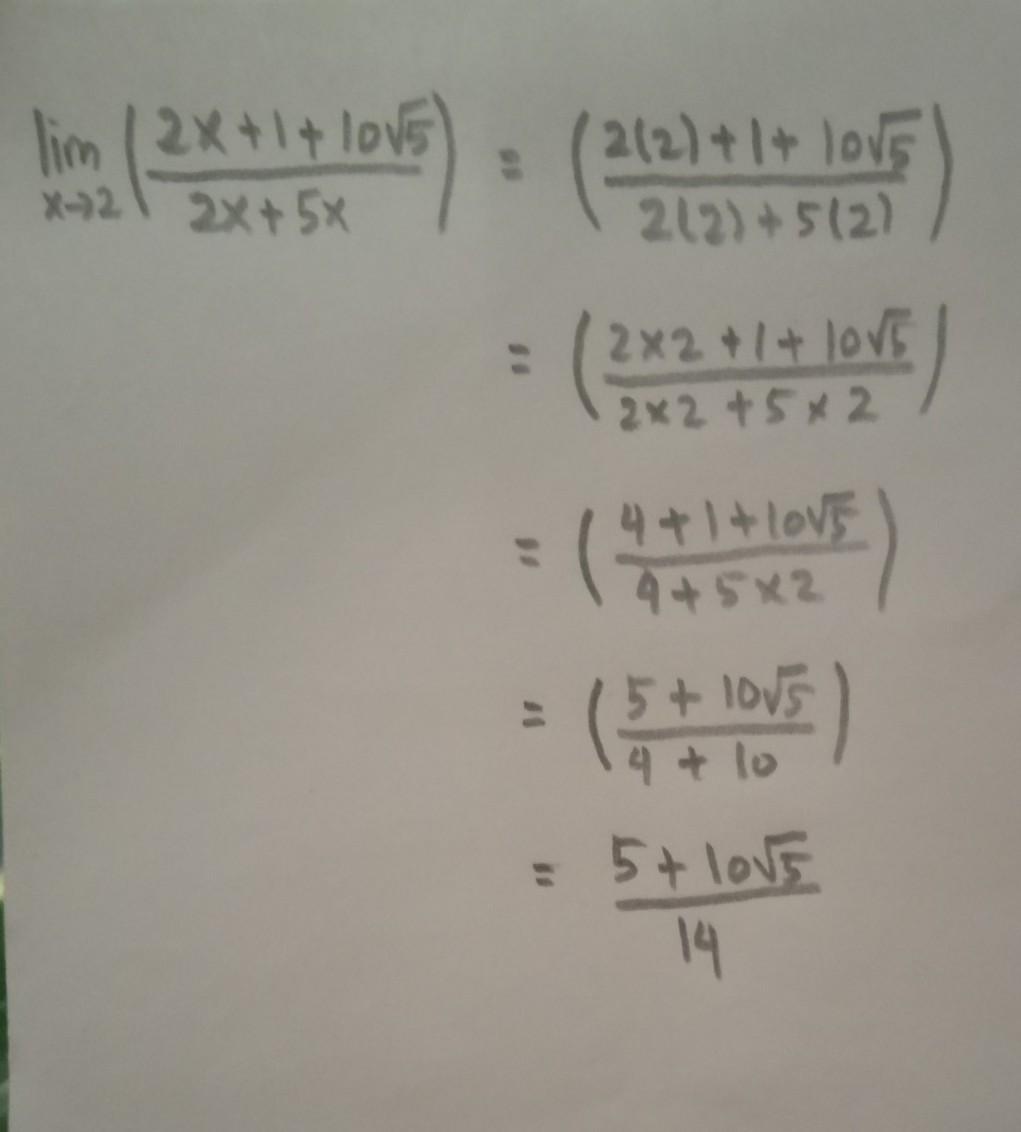 lim x→2 (2x+1+10√5 / 2x+5x) = (2(2)+1+10√5 / 2(2)+5(2))
= (2×2+1+10√5 / 2×2+5×2)
= (4+1+10√5 / 4+5×2)
= (5+10√5 / 4+10)
= 5+10√5 / 14